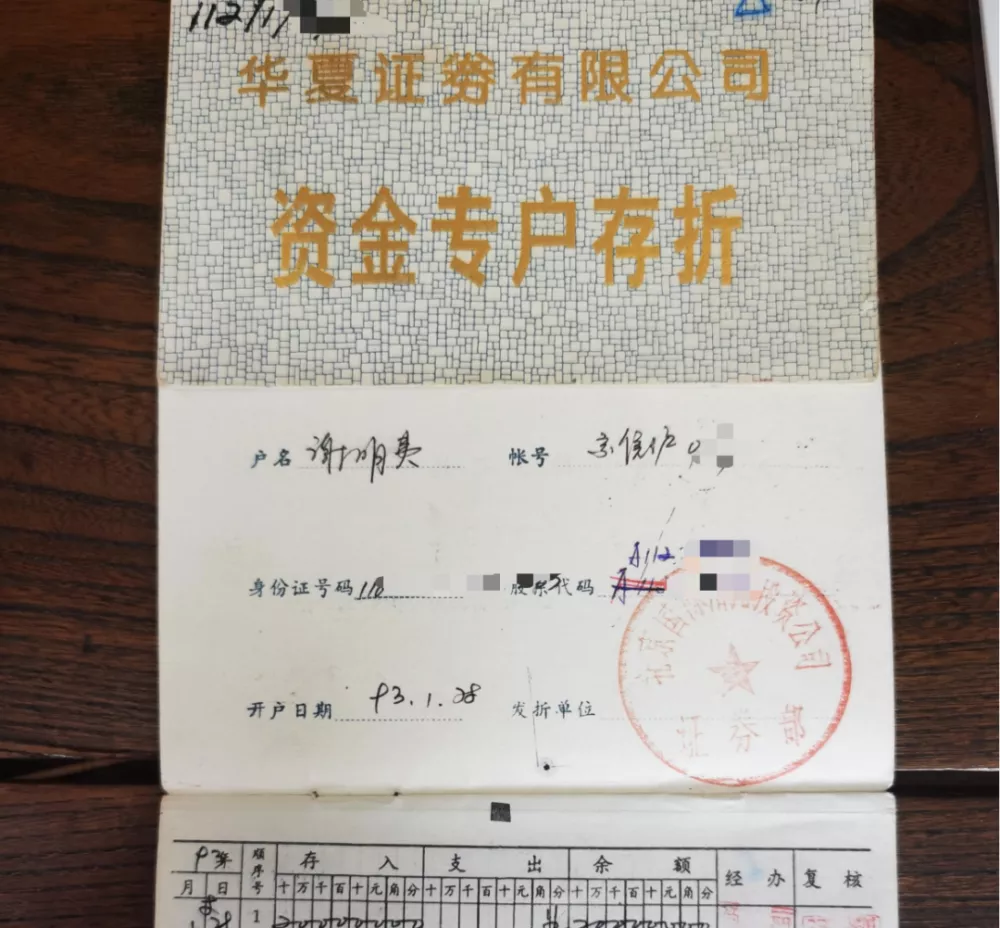 112/11
华夏证券有限公司
资金专户存折
户名 谢明英 帐号 京侯伊0
身份证号码 110 股东代码 A112
开户日期 93.1.28 发折单位
投资公司
证券部
93年 顺序号 存入 支出 余额 经办 复核
月 日 十万千百十元角分 十万千百十元角分 十万千百十元角分
1.28 1